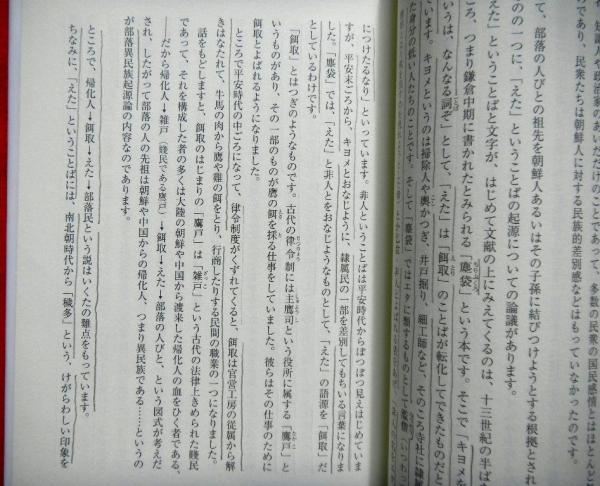 知識人や政治家のあいだだけのことであって、多数の民衆の国民感情とはほとんど
のであり、民衆たちは朝鮮人に対する民族的差別感などはもっていなかったのです。
て、部落の人びとの祖先を朝鮮人あるいはその子孫に結びつけようとする根拠とされ
のの一つに、「えた」ということばの起源についての論議があります。
「えた」ということばと文字が、はじめて文献の上にみえてくるのは、十三世紀の半ば
ころ、つまり鎌倉中期に書かれたとみられる『塵袋』という本です。そこで「キヨメを
いうは、なんなる詞ぞ」として、「えた」は「餌取」のことばが転化してできたものだと
ています。キヨメというのは掃除人や輿かつぎ、井戸掘り、細工師など、そのころ寺社に隷属
た身分の低い人たちのことです。そして『塵袋』ではエタに類するものとして
につけたるなり」といっています。非人ということばは平安時代からぽつぽつ見えはじめていま
すが、平安末ごろから、キヨメとおなじように、隷属民の一部を差別してもちいる言葉になりま
した。『塵袋』では、「えた」と非人とをおなじようなものとして、「えた」の語源を「餌取」だ
としているわけです。
「餌取」とはつぎのようなものです。古代の律令制には主鷹司という役所に属する「鷹戸」と
いうものがあり、その一部のものが鷹の餌を採る仕事をしていました。彼らはその仕事のために
餌取とよばれるようになりました。
ところで平安時代の中ごろになって、律令制度がくずれてくると、餌取は官営工房の従属から解
きはなたれて、牛馬の肉から鷹や雞の餌をとり、行商したりする民間の職業の一つになりました。
話をもどしますと、餌取のはじまりの「鷹戸」は「雑戸」という古代の法律上きめられた賤民
であって、それを構成した者の多くは大陸の朝鮮や中国から渡来した帰化人の血をひく者である、
だから帰化人→雑戸（賤民である鷹戸）→餌取→えた→部落の人びと、という図式が考えだ
され、したがって部落の人の先祖は朝鮮や中国からの帰化人、つまり異民族である……というの
が部落異民族起源論の内容なのであります。
ところで、帰化人→餌取→えた→部落民という説はいくたの難点をもっています。
ちなみに、「えた」ということばには、南北朝時代から「穢多」という、けがらわしい印象を